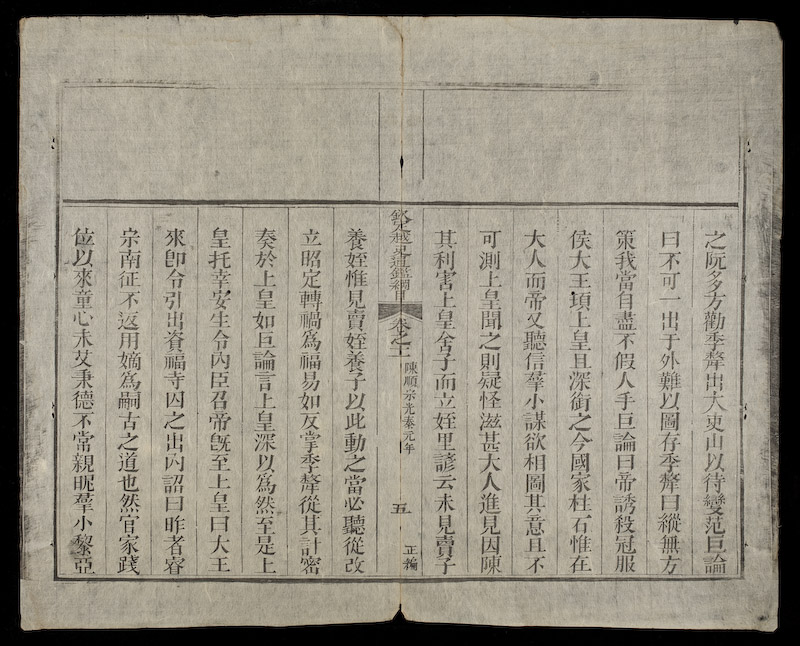 之阮多方勸季犛出大吏山以待變范巨論
曰不可一出于外難以圖存季犛曰縱無方
策我當自盡不假人手巨論曰帝誘殺冠服
侯大王頊上皇且深銜之今國家柱石惟在
大人而帝又聽信羣小謀欲相圖其意且不
可測上皇聞之則疑怪滋甚大人進見因陳
其利害上皇舍子而立姪里諺云未見賣子
欽定越史通鑑綱目
卷之十一
陳順宗光泰元年
五
正編
養姪惟見賣姪養子以此動之當必聽從改
立昭定轉禍爲福易如反掌季犛從其計密
奏於上皇如巨論言上皇深以爲然至是上
皇托幸安生令內臣召帝旣至上皇曰大王
來卽令引出資福寺囚之出內詔曰昨者睿
宗南征不返用嫡爲嗣古之道也然官家踐
位以來童心未艾秉德不常親昵羣小黎亞